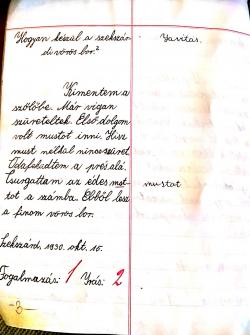 Hogyan készül a szekszár-
di vörös bor?
Javítás.
Kimentem a
szőlőbe. Már vígan
szüreteltek. Első dolgom
volt mustot inni. Hisz
must nélkül nincs szüret.
Odafeküdtem a prés alá.
Csurgattam az édes mus-
tot a számba. Ebből lesz
a finom vörös bor.
mustot
Szekszárd, 1930. okt. 16.
Fogalmazás: 1 Írás: 2
-8-